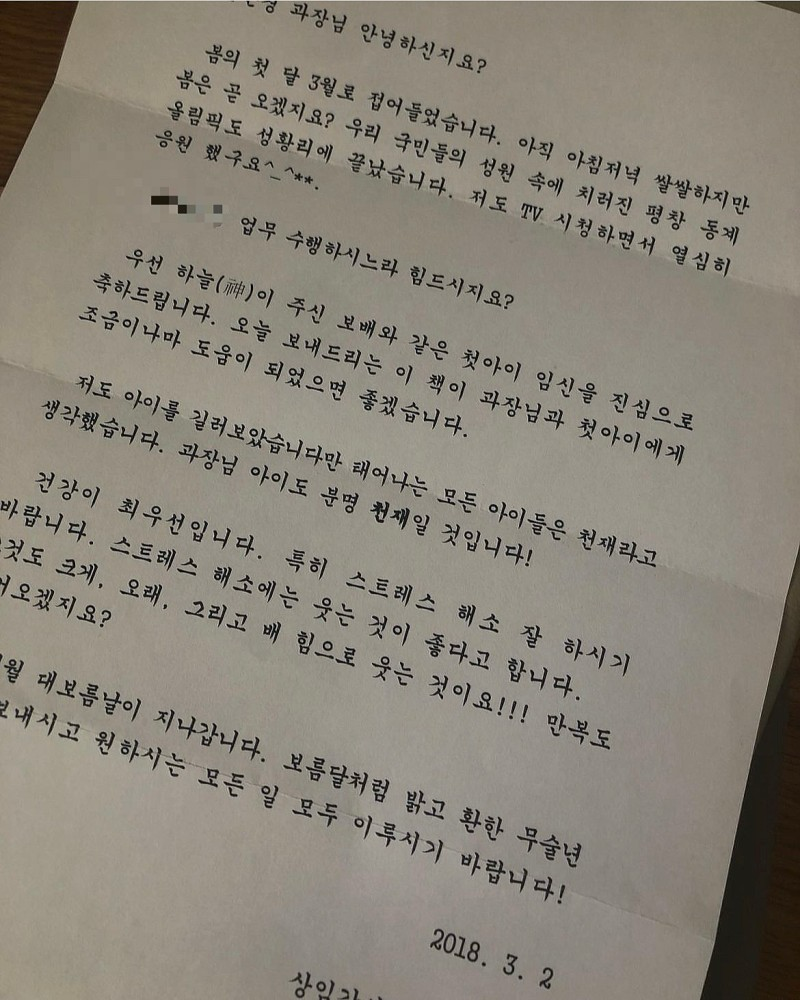 과장님 안녕하신지요?
봄의 첫 달 3월로 접어들었습니다. 아직 아침저녁 쌀쌀하지만
봄은 곧 오겠지요? 우리 국민들의 성원 속에 치러진 평창 동계
올림픽도 성황리에 끝났습니다. 저도 TV 시청하면서 열심히
응원 했구요^_^**.
업무 수행하시느라 힘드시지요?
우선 하늘(神)이 주신 보배와 같은 첫아이 임신을 진심으로
축하드립니다. 오늘 보내드리는 이 책이 과장님과 첫아이에게
조금이나마 도움이 되었으면 좋겠습니다.
저도 아이를 길러보았습니다만 태어나는 모든 아이들은 천재라고
생각했습니다. 과장님 아이도 분명 천재일 것입니다!
건강이 최우선입니다. 특히 스트레스 해소 잘 하시기
바랍니다. 스트레스 해소에는 웃는 것이 좋다고 합니다.
크게, 오래, 그리고 배 힘으로 웃는 것이요!!! 만복도
대보름날이 지나갑니다. 보름달처럼 밝고 환한 무술년
보내시고 원하시는 모든 일 모두 이루시기 바랍니다!
2018. 3. 2